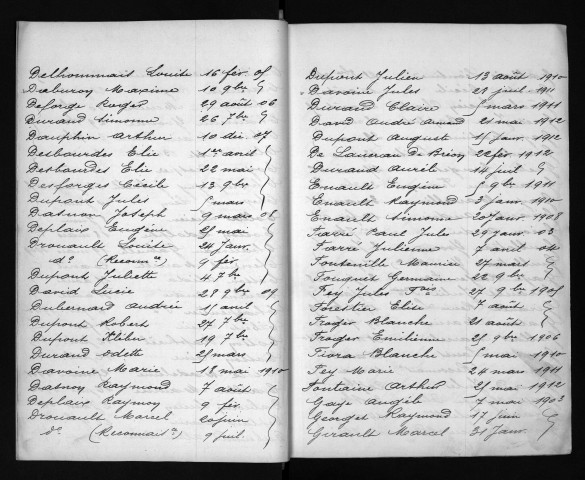 Delhommais Louise 16 fév. 05
Daburon Maxime 10 9bre
Deforge Roger 29 août 06
Durand Simonne 26 7bre
Dauphin Arthur 10 déc. 07
Desbourdes Elie 1er avril
Desbourdes Elie 22 mai
Desforges Cécile 13 9bre
Dupont Jules 5 mars
Datnoy Joseph 9 mars 08
Deplais Eugène 25 mai
Drouault Louise 24 Janv.
do (Reconnce) 9 fév.
Dupont Juliette 4 7bre
David Lucie 28 9bre 09
Dubernard Andrée 5 avril
Dupont Robert 27 7bre
Dupont Kléber 19 7bre
Durand Odette 25 mars
Davoine Marie 18 mai 1910
Datnoy Raymond 7 août
Deplais Raymon 9 fév.
Drouault Marcel 20 juin
do (Reconnaisce) 9 juil.
Dupont Julien 13 août 1910
Davoine Jules 23 juil 1911
Durand Claire 5 mars 1911
David André 21 mai 1912
Dupont Auguste 15 Janv. 1912
22 fév. 1912
Durand Aurèle 14 juil
Enault Eugène 5 9bre 1911
Enault Raymond 3 Janv. 1910
Enault Simonne 20 Janv. 1908
Farré Paul Jules 29 Janv. 03
Farré Julienne 7 avril 04
Fonteville Maurice 27 mars
Fouquet Germaine 22 9bre
Fey Jules Fois 27 9bre 1905
Forestier Elise 7 août
Froger Blanche 21 août
Froger Emilienne 25 9bre 1906
Blanche 5 mai 1910
Fey Marie 24 mars 1911
Fontaine Arthur 25 mai 1912
Gaye Angèle 7 mai 1903
Georget Raymond 17 juin
Girault Marcel 31 Janv.